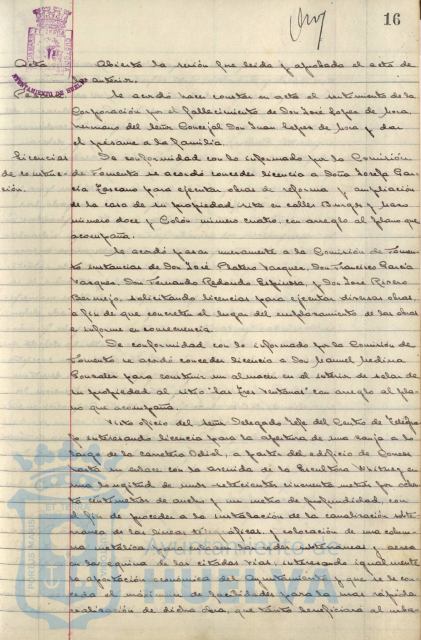 16
Acta Abierta la sesión fue leida y aprobada el acta de
la anterior.
Pésame Se acordó hacer constar en acta el sentimiento de la
Corporación por el fallecimiento de Don José Lopez de Mora,
hermano del Señor Concejal Don Juan Lopez de Mora y dar
el pésame a la familia.
Licencias De conformidad con lo informado por la Comisión
de construc- de Fomento se acordó conceder licencia a Doña Josefa Gar-
ción. cia Toscano para ejecutar obras de reforma y ampliación
de la casa de su propiedad sita en calles Burgos y Mazo
número doce y Colón número cuatro, con arreglo al plano que
acompaña.
Se acordó pasar nuevamente a la Comisión de Fomen-
to instancias de Don José Platero Vazquez, Don Francisco Garcia
Vazquez, Don Fernando Redondo Espinosa y Don José Romero
Bermejo, solicitando licencias para ejecutar diversas obras,
a fin de que concreten el lugar del emplazamiento de las obras
e informe en consecuencia.
De conformidad con lo informado por la Comisión de
Fomento se acordó conceder licencia a Don Manuel Medina
Gonzalez para construir un almacen en el interior de solar de
su propiedad al sitio "Las Tres Ventanas" con arreglo al pla-
no que acompaña.
Visto oficio del Señor Delegado Jefe del Centro de Telégra-
fo interesando licencia para la apertura de una zanja a lo
largo de la carretera Odiel, a partir del edificio de Correos
hasta su enlace con la avenida de la Escultora Whitney en
una longitud de unos setecientos cincuenta metros por ochen-
ta centímetros de ancho y un metro de profundidad, con
el fin de proceder a la instalación de la canalización subte-
rranea de las lineas telegráficas, y colocación de una colum-
na metálica
en la esquina de las citadas vias, interesando igualmente
la aportación económica del Ayuntamiento y que se le con-
ceda el máximun de facilidades para la mas rápida
realización de dicha obra, que tanto beneficiará al urba-
Ayuntamiento de
HUELVA